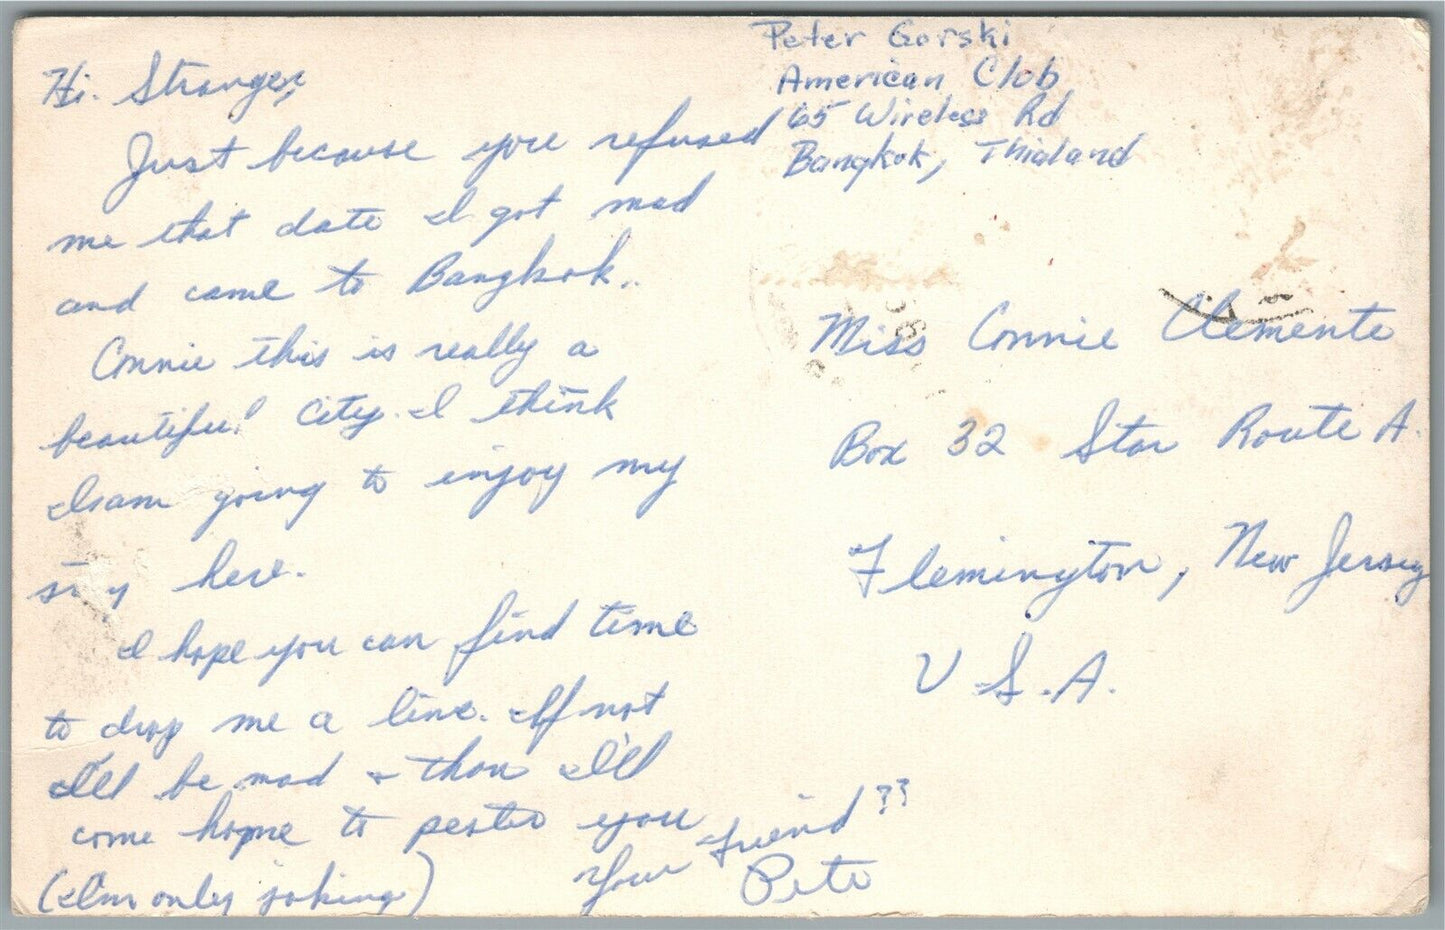 Hi. Stranger,
Just because you refused
me that date I got mad
and came to Bangkok..
Connie this is really a
beautiful City. I think
I am going to enjoy my
stay here.
I hope you can find time
to drop me a line. If not
I'll be mad & than I'll
come home to pester you
(I'm only joking)
Your friend??
Pete
Peter Gorski
American Club
65 Wireless Rd
Bangkok, Thialand
Miss Connie Clemente
Box 32 Star Route A.
Flemington, New Jersey
U.S.A.